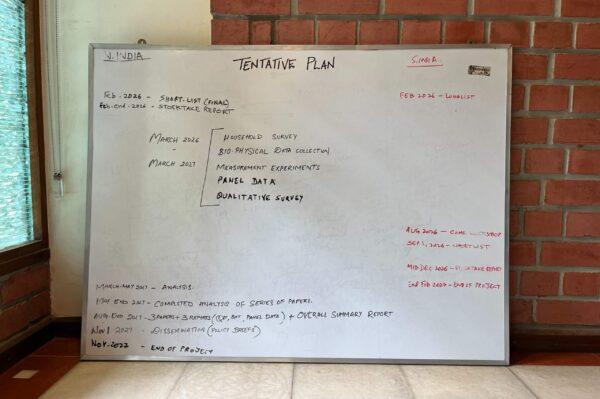 N.INDIA
TENTATIVE PLAN
S.INDIA
Feb-2026 - SHORT-LIST (FINAL)
Feb-end-2026 - STOCKTAKE REPORT
FEB 2026 - LONGLIST
MARCH 2026
-
MARCH 2027
HOUSEHOLD SURVEY
BIO-PHYSICAL DATA COLLECTION
MEASUREMENT EXPERIMENTS
PANEL DATA
QUALITATIVE SURVEY
AUG 2026 -
SEP 1, 2026 -
MID DEC 2026 -
End Feb 2027 - END OF PROJECT
MARCH-MAY 2027 - ANALYSIS.
MAY END 2027 - COMPLETED ANALYSIS OF SERIES OF PAPERS.
AUG. END 2027 - 3 PAPERS + 3 REPORTS ( PANEL DATA) + OVERALL SUMMARY REPORT
Nov 1 2027 - DISSEMINATION (POLICY BRIEFS)
Nov-2027 - END OF PROJECT